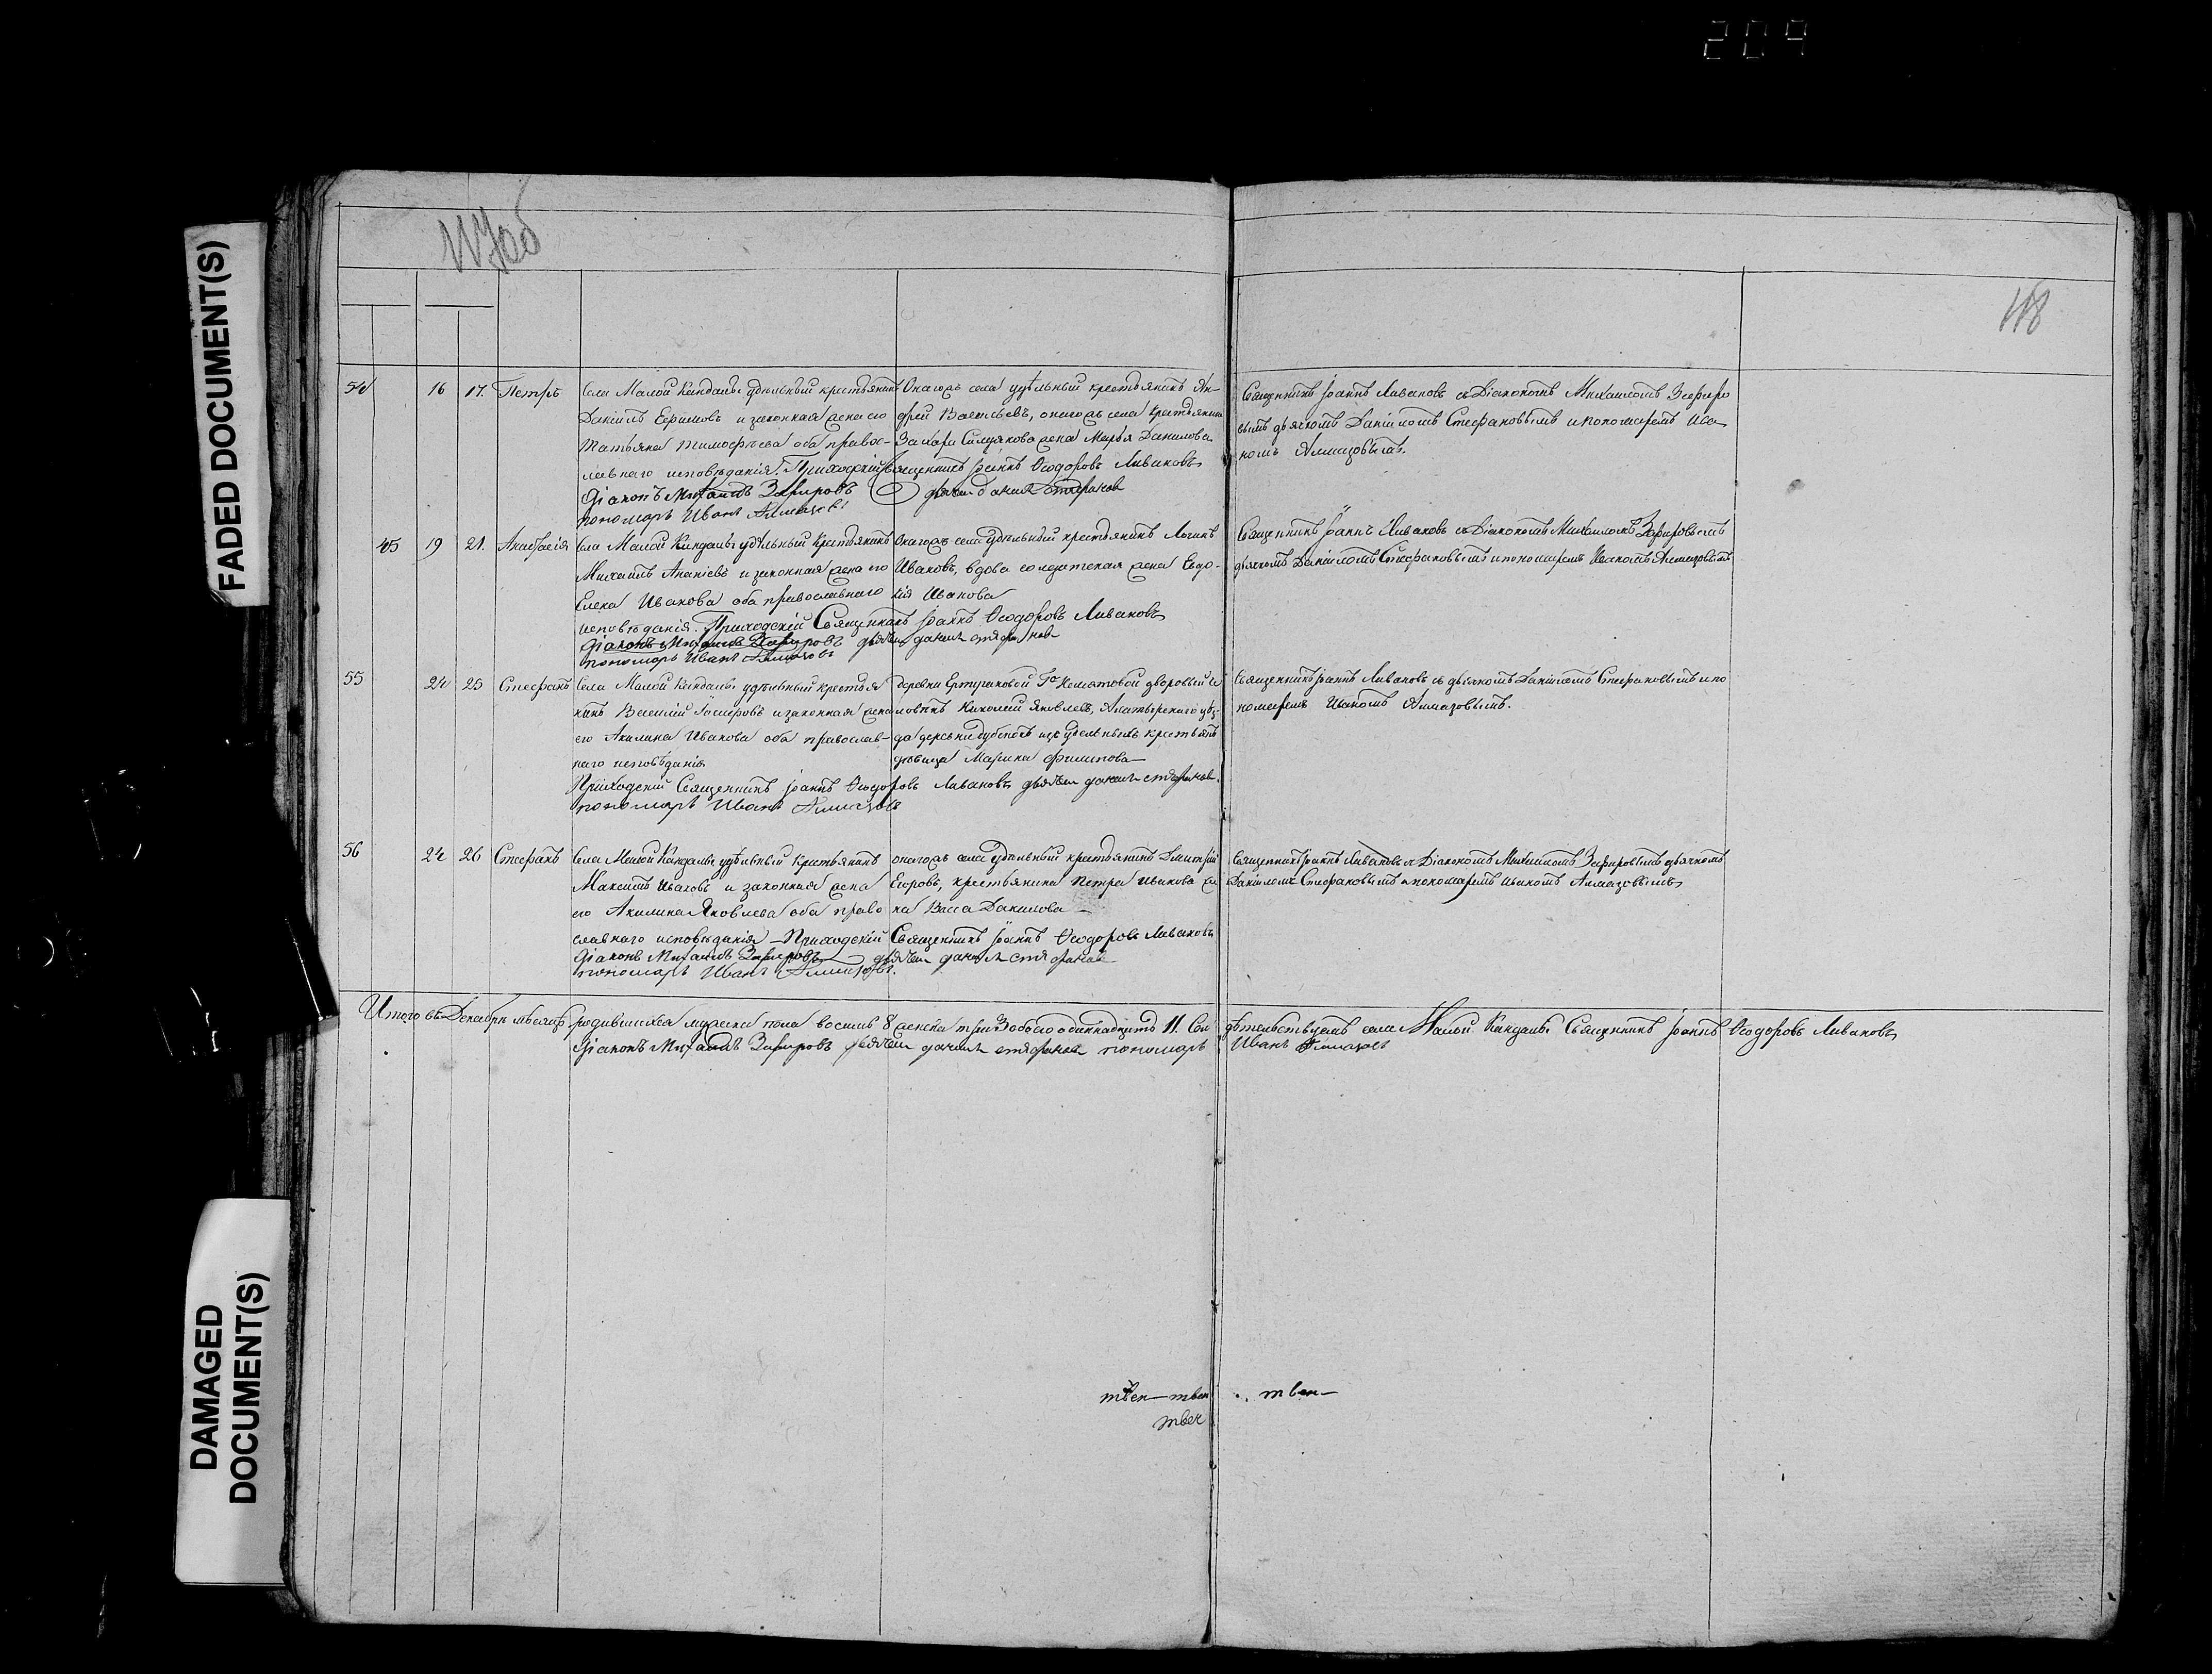 204
FADED DOCUMENT(S)
DAMAGED
DOCUMENT(S)
117об
118
54 16 17. Петръ
Села Малой Кандалы удѣльный крестьянинъ
Даніилъ Ефимовъ и законная жена его
Татьяна Тимофѣева оба правос-
лавнаго исповѣданія. Приходскій Священникъ Іоаннъ Ѳеодоровъ Ливановъ
Діаконъ Михаилъ Зефировъ дьячекъ данилъ стефановъ
пономарь Иванъ Алмазовъ
Онагожъ села удѣльный крестьянинъ Ан-
дрей Васильевъ, онагожъ села крестьянина
Захара Симдянова жена Марья Данилова
Священникъ Іоаннъ Ливановъ съ Діакономъ Михаиломъ Зефиро
вымъ дьячкомъ Даніиломъ Стефановымъ и пономаремъ Ива
номъ Алмазовымъ.
45 19 21. Анастасія
Села Малой Кандалы удѣльный крестьянинъ
Михаилъ Ананіевъ и законная жена его
Елена Иванова оба православнаго
исповѣданія. Приходскій Священникъ Іоаннъ Ѳеодоровъ Ливановъ
Діаконъ Михаилъ Зефировъ дьячекъ данилъ стефановъ
пономарь Иванъ Алмазовъ
Онагожъ села удѣльный крестьянинъ Логинъ
Ивановъ, вдова солдатская жена Евдо-
кія Иванова
Священникъ Іоаннъ Ливановъ съ Діакономъ Михаиломъ Зефировымъ
дьячкомъ Даніиломъ Стефановымъ и пономаремъ Иваномъ Алмазовымъ
55 24 25 Стефанъ
Села Малой Кандалы удѣльный крестья
нинъ Василій Іосифовъ и законная жена
его Акилина Иванова оба православ-
наго исповѣданія
Приходскій Священникъ Іоаннъ Ѳеодоровъ Ливановъ дьячекъ данилъ стефановъ.
пономарь Иванъ Алмазовъ
деревни Ертугановой Го дворовый че
ловѣкъ Николай Яковлевъ, Алатырскаго уѣз-
да деревни изъ удѣльныхъ крестьянъ
дѣвица Марина Филипова
Священникъ Іоаннъ Ливановъ съ дьячкомъ Даніиломъ Стефановымъ и по
номаремъ Иваномъ Алмазовымъ.
56 24 26 Стефанъ
Села Малой Кандалы удѣльный крестьянинъ
Максимъ Ивановъ и законная жена
его Акилина Яковлева оба право
славнаго исповѣданія Приходскій Священникъ Іоаннъ Ѳеодоровъ Ливановъ
Діаконъ Михаилъ Зефировъ дьячекъ данилъ стефановъ
пономарь Иванъ Алмазовъ.
онагожъ села удѣльный крестьянинъ Дмитрій
Егоровъ, крестьянина Петра Иванова же
на Васса Данилова
Священникъ Іоаннъ Ливановъ съ Діакономъ Михаиломъ Зефировымъ дьячкомъ
Даніиломъ Стефановымъ и пономаремъ Иваномъ Алмазовымъ
Итого въ Декабрѣ мѣсяцѣ родившихся мужеска пола восмь 8 женска три 3 обоего одиннадцать 11. Сви дѣтельствуемъ села Малой Кандалы Священникъ Іоаннъ Ѳеодоровъ Ливановъ
Діаконъ Михаилъ Зефировъ дьячекъ данилъ стефановъ пономарь Иванъ Алмазовъ
твен—твен твен—
твен